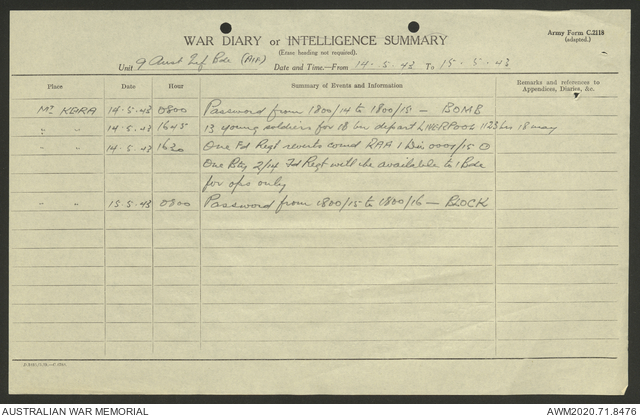 Army Form C.2118
(adapted.)
WAR DIARY or INTELLIGENCE SUMMARY
(Erase heading not required).
Unit 9 Aust Inf Bde (AIF) Date and Time—From 14.5.43 To 15.5.43
Place Date Hour Summary of Events and Information Remarks and references to Appendices, Diaries, &c.
Mt KEIRA 14.5.43 0800 Password from 1800/14 to 1800/15 — BOMB
" " 14.5.43 1645 13 young soldiers for 18 bn depart LIVERPOOL 1123 hrs 18 may
" " 14.5.43 1630 One Fd Regt reverts comd RAA 1 Div 0001/15
One Bty 2/14 Fd Regt will be available to 1 Bde
for ops only
" " 15.5.43 0800 Password from 1800/15 to 1800/16 — BLOCK
AUSTRALIAN WAR MEMORIAL
AWM2020.71.8476